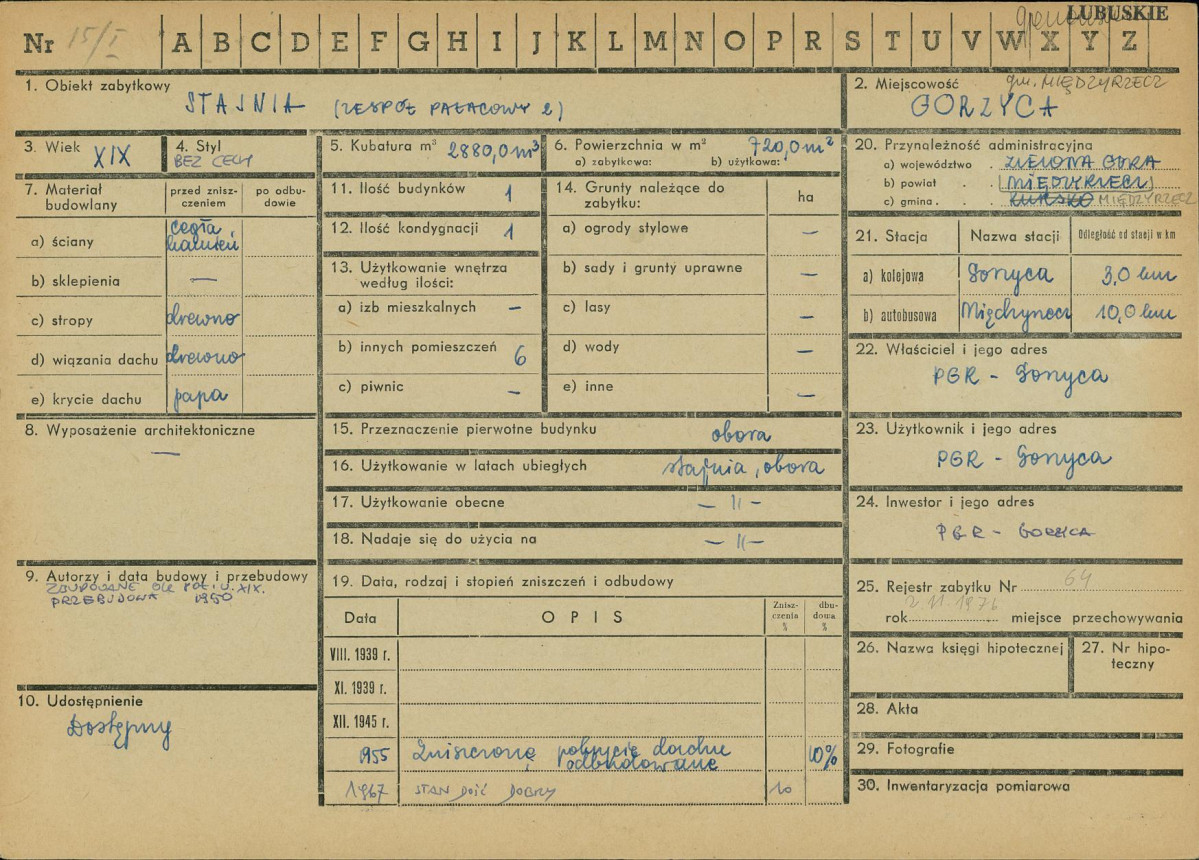 LUBUSKIE
Nr 15/I A B C D E F G H I J K L M N O P R S T U V W X Y Z
1. Obiekt zabytkowy
STAJNIA (ZESPÓŁ PAŁACOWY 2)
2. Miejscowość gm. MIĘDZYRZECZ
GORZYCA
3. Wiek XIX
4. Styl
BEZ CECH
5. Kubatura m³ 2880,0 m³
6. Powierzchnia w m² 720,0 m²
a) zabytkowa: b) użytkowa:
7. Materiał budowlany
przed zniszczeniem
po odbudowie
a) ściany cegła kamień
b) sklepienia —
c) stropy drewno
d) wiązania dachu drewno
e) krycie dachu papa
8. Wyposażenie architektoniczne
—
9. Autorzy i data budowy i przebudowy
ZBUDOWANE OK. POŁ. W. XIX.
PRZEBUDOWA 1950
10. Udostępnienie
Dostępny
11. Ilość budynków 1
12. Ilość kondygnacji 1
13. Użytkowanie wnętrza
według ilości:
a) izb mieszkalnych —
b) innych pomieszczeń 6
c) piwnic —
14. Grunty należące do
zabytku: ha
a) ogrody stylowe —
b) sady i grunty uprawne —
c) lasy —
d) wody —
e) inne —
15. Przeznaczenie pierwotne budynku obora
16. Użytkowanie w latach ubiegłych stajnia, obora
17. Użytkowanie obecne — II —
18. Nadaje się do użycia na — II —
19. Data, rodzaj i stopień zniszczeń i odbudowy
Data OPIS Zniszczenia % dbudowa %
VIII. 1939 r.
XI. 1939 r.
XII. 1945 r.
1955 Zniszczone pokrycie dachu odbudowane 10%
1967 STAN DOŚĆ DOBRY 10
20. Przynależność administracyjna
a) województwo ZIELONA GÓRA
b) powiat MIĘDZYRZECZ
c) gmina KURSKO MIĘDZYRZECZ
21. Stacja Nazwa stacji Odległość od stacji w km
a) kolejowa Gorzyca 3,0 km
b) autobusowa Międzyrzecz 10,0 km
22. Właściciel i jego adres
PGR - Gorzyca
23. Użytkownik i jego adres
PGR - Gorzyca
24. Inwestor i jego adres
PGR - GORZYCA
25. Rejestr zabytku Nr 64
rok 2 11 1976 miejsce przechowywania
26. Nazwa księgi hipotecznej
27. Nr hipoteczny
28. Akta
29. Fotografie
30. Inwentaryzacja pomiarowa